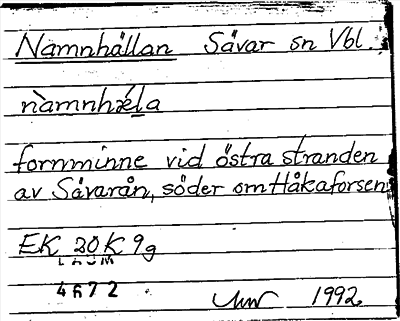 Namnhällan Sävar sn Vbl.
nàmnhǽla
fornminne vid östra stranden
av Sävarån, söder om Håkaforsen
EK 20K 9g
4672
1992